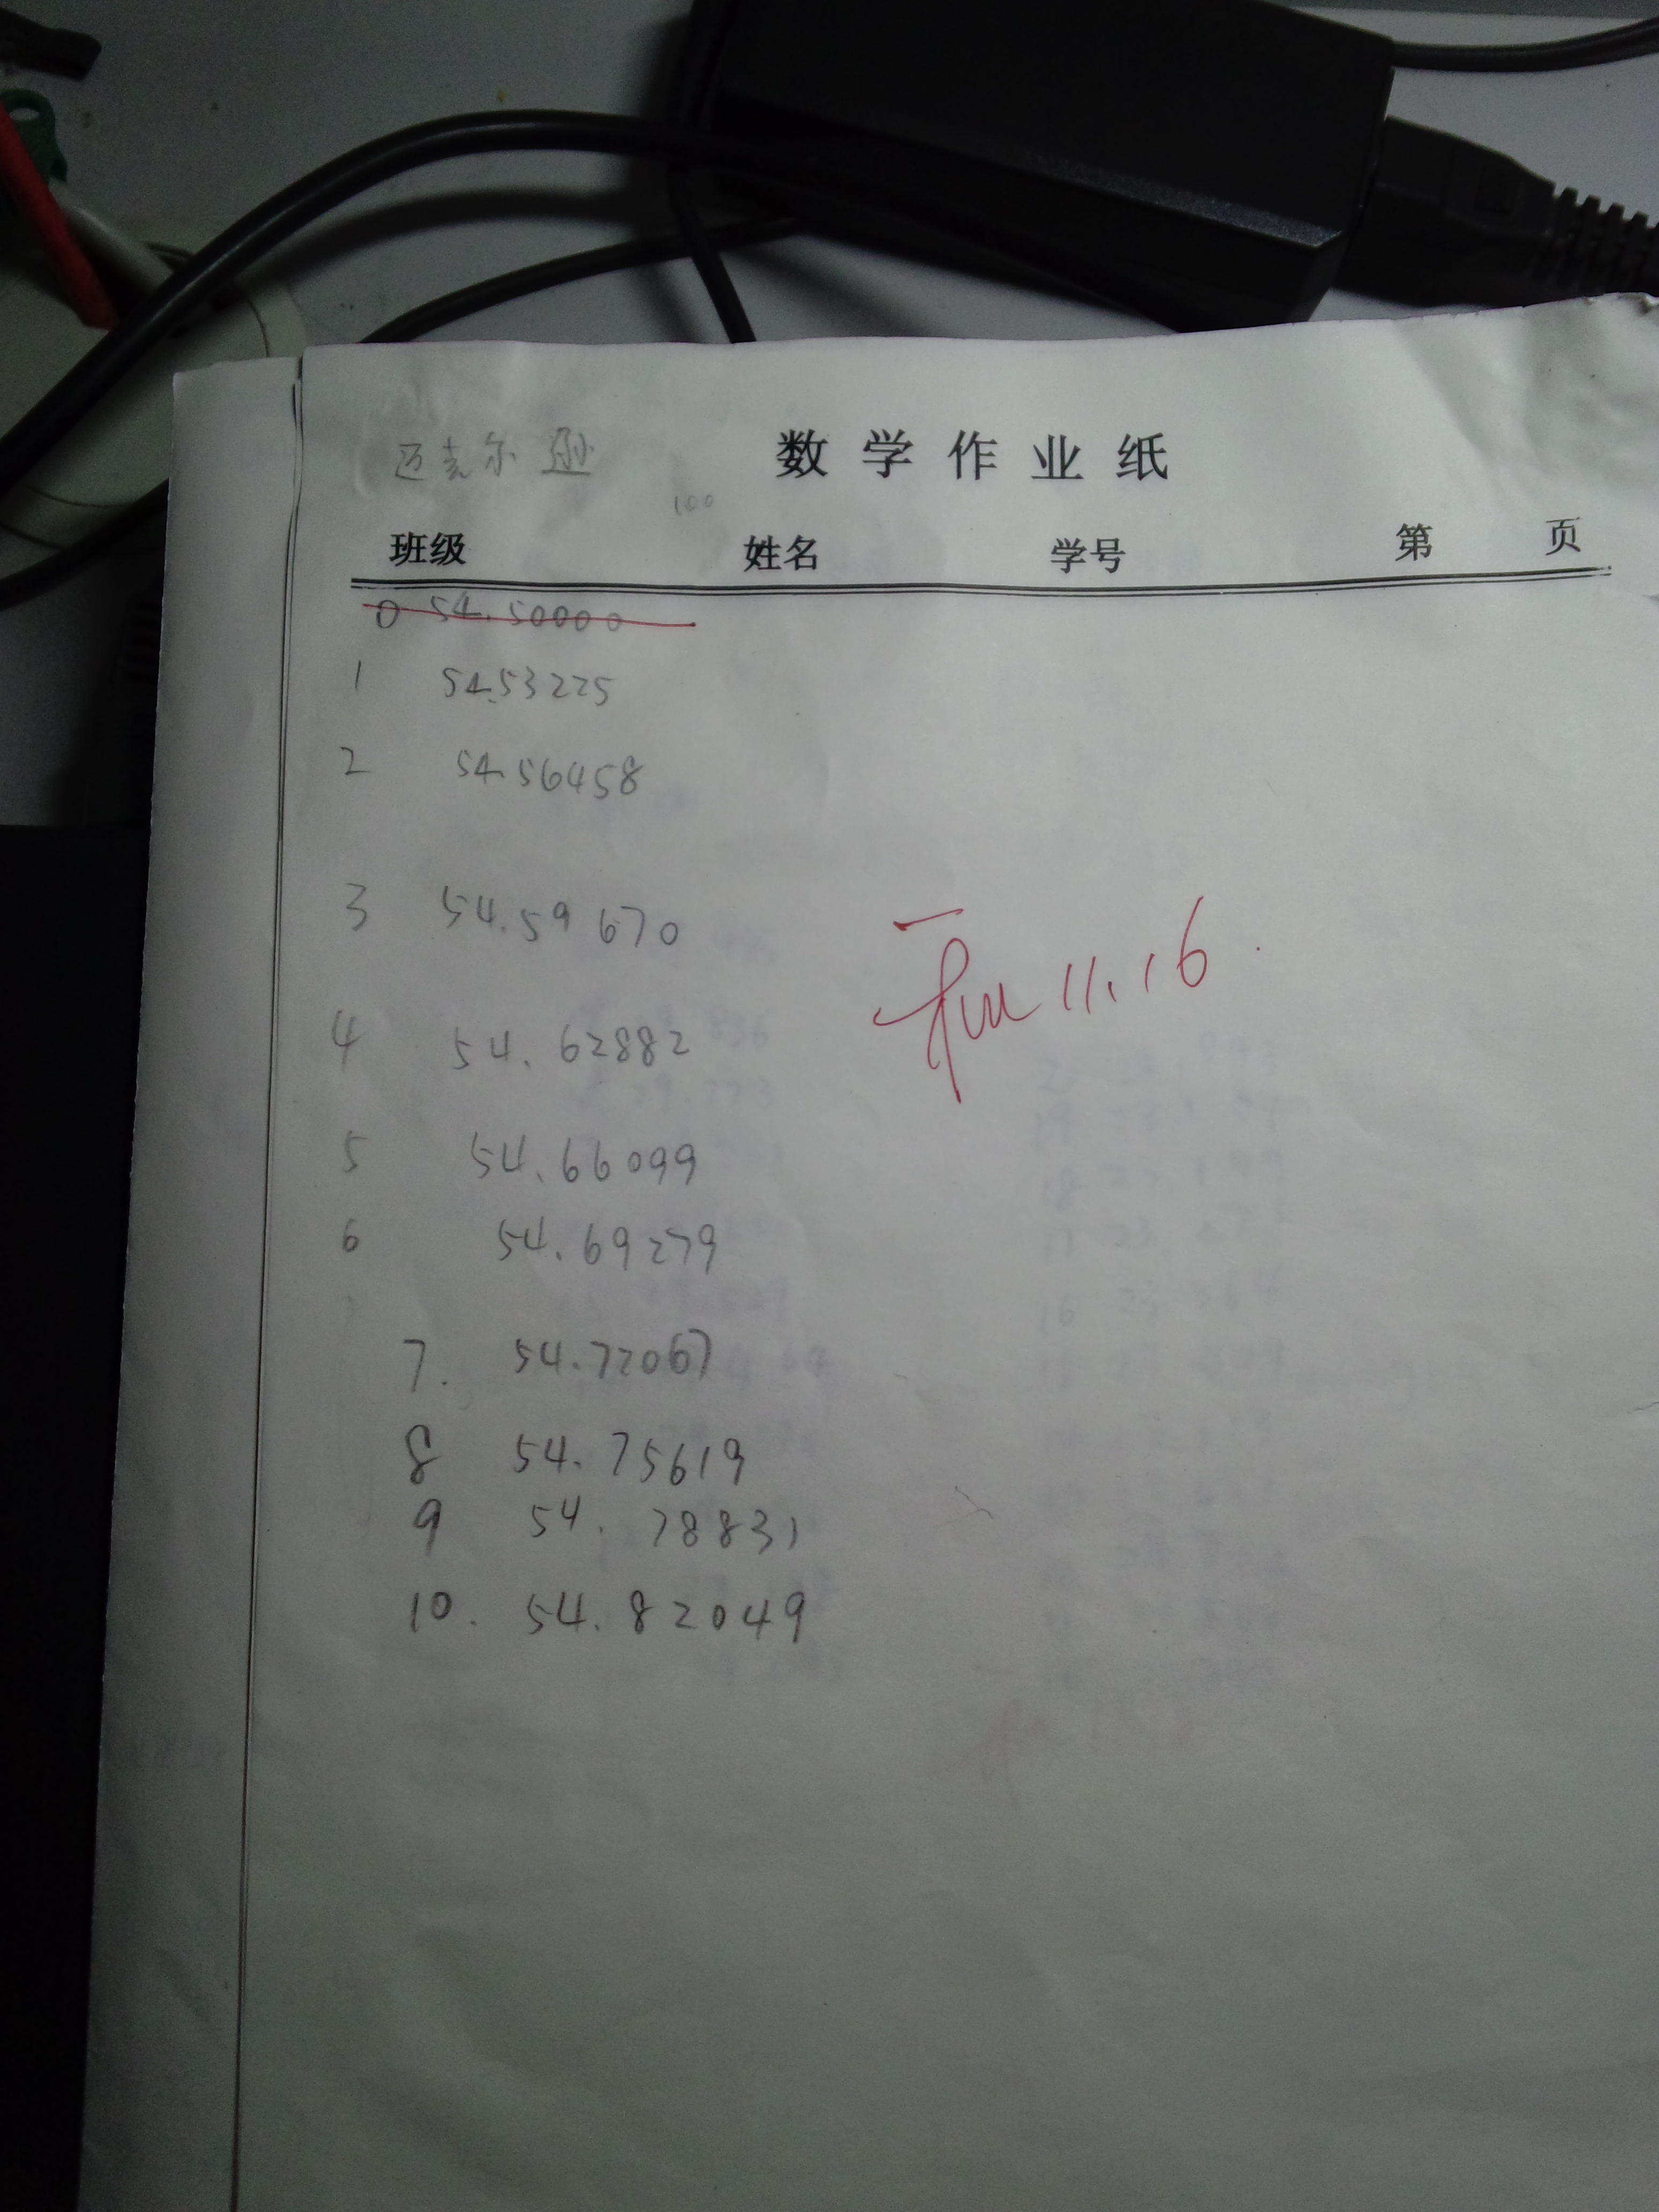 迈克尔逊
数学作业纸
100
班级 姓名 学号 第 页
0 54.50000
1 54.53225
2 54.56458
3 54.59670
11.16
4 54.62882
5 54.66099
6 54.69279
7. 54.72067
8 54.75619
9 54.78831
10. 54.82049